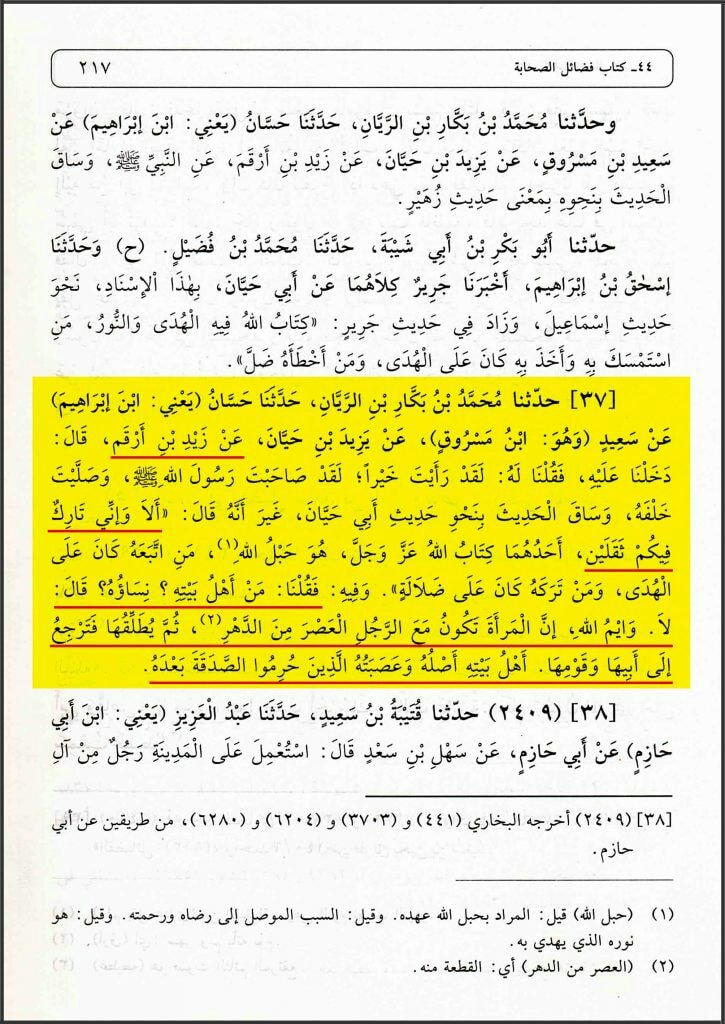 ٤٤ـ كتاب فضائل الصحابة ٢١٧
وحدَّثنا مُحَمَّدُ بْنُ بَكَّارِ بْنِ الرَّيَّانِ، حَدَّثَنَا حَسَّانُ (يَعْنِي: ابْنَ إِبْرَاهِيمَ) عَنْ
سَعِيدِ بْنِ مَسْرُوقٍ، عَنْ يَزِيدَ بْنِ حَيَّانَ، عَنْ زَيْدِ بْنِ أَرْقَمَ، عَنِ النَّبِيِّ ﷺ، وَسَاقَ
الْحَدِيثَ بِنَحْوِهِ بِمَعْنَى حَدِيثِ زُهَيْرٍ.
حدّثنا أَبُو بَكْرِ بْنُ أَبِي شَيْبَةَ، حَدَّثَنَا مُحَمَّدُ بْنُ فُضَيْلٍ. (ح) وَحَدَّثَنَا
إِسْحٰقُ بْنُ إِبْرَاهِيمَ، أَخْبَرَنَا جَرِيرٌ كِلَاهُمَا عَنْ أَبِي حَيَّانَ، بِهٰذَا الْإِسْنَادِ، نَحْوَ
حَدِيثِ إِسْمَاعِيلَ، وَزَادَ فِي حَدِيثِ جَرِيرٍ: «كِتَابُ اللهُ فِيهِ الْهُدَى وَالنُّورُ، مَنِ
اسْتَمْسَكَ بِهِ وَأَخَذَ بِهِ كَانَ عَلَى الْهُدَى، وَمَنْ أَخْطَأَهُ ضَلَّ».
[٣٧] حدّثنا مُحَمَّدُ بْنُ بَكَّارِ بْنِ الرَّيَّانِ، حَدَّثَنَا حَسَّانُ (يَعْنِي: ابْنَ إِبْرَاهِيمَ)
عَنْ سَعِيدٍ (وَهُوَ: ابْنُ مَسْرُوقٍ)، عَنْ يَزِيدَ بْنِ حَيَّانَ، عَنْ زَيْدِ بْنِ أَرْقَمَ، قَالَ:
دَخَلْنَا عَلَيْهِ، فَقُلْنَا لَهُ: لَقَدْ رَأَيْتَ خَيْراً؛ لَقَدْ صَاحَبْتَ رَسُولَ اللهِ ﷺ، وَصَلَّيْتَ
خَلْفَهُ، وَسَاقَ الْحَدِيثَ بِنَحْوِ حَدِيثِ أَبِي حَيَّانَ، غَيرَ أَنَّهُ قَالَ: «أَلَا وَإِنِّي تَارِكٌ
فِيكُمْ ثَقَلَيْنِ، أَحَدُهُمَا كِتَابُ اللهُ عَزَّ وَجَلَّ، هُوَ حَبْلُ اللهِ(١)، مَنِ اتَّبَعَهُ كَانَ عَلَى
الْهُدَى، وَمَنْ تَرَكَهُ كَانَ عَلَى ضَلَالَةٍ». وَفِيهِ: فَقُلْنَا: مَنْ أَهْلُ بَيْتِهِ؟ نِسَاؤُهُ؟ قَالَ:
لاَ. وَايْمُ اللهِ، إِنَّ الْمَرأَةَ تَكُونُ مَعَ الرَّجُلِ الْعَصْرَ مِنَ الدَّهْرِ(٢)، ثُمَّ يُطَلِّقُهَا فَتَرْجِعُ
إِلَى أَبِيهَا وَقَوْمِهَا. أَهْلُ بَيْتِهِ أَصْلُهُ وَعَصَبَتُهُ الَّذِينَ حُرِمُوا الصَّدَقَةَ بَعْدَهُ.
[٣٨] (٢٤٠٩) حدّثنا قُتَيْبَةُ بْنُ سَعِيدٍ، حَدَّثَنَا عَبْدُ الْعَزِيزِ (يَعْنِي: ابْنَ أَبِي
حَازِمٍ) عَنْ أَبِي حَازِمٍ، عَنْ سَهْلِ بْنِ سَعْدٍ قَالَ: اسْتُعْمِلَ عَلَى الْمَدِينَةِ رَجُلٌ مِنْ آلِ
[٣٨] (٢٤٠٩) أخرجه البخاري (٤٤١) و (٣٧٠٣) و (٦٢٠٤) و (٦٢٨٠)، من طريقين عن أبي
حازم.
(١) (حبل الله) قيل: المراد بحبل الله عهده. وقيل: السبب الموصل إلى رضاه ورحمته. وقيل: هو
نوره الذي يهدي به.
(٢) (العصر من الدهر) أي: القطعة منه.